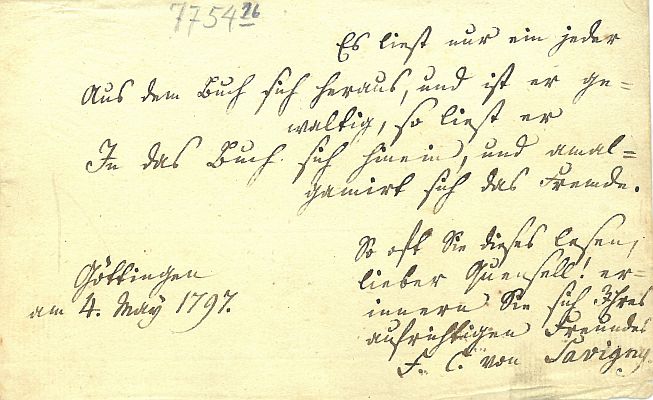 7754 26
Es liest nur ein jeder
Aus dem Buch sich heraus, und ist er ge=
waltig, so liest er
In das Buch sich hinein, und amal=
gamirt sich das Fremde.
So oft Sie dieses lesen,
lieber Quensell! er=
innern Sie sich Ihres
aufrichtigen Freundes
F. C. von Savigny.
Göttingen
am 4. May 1797.